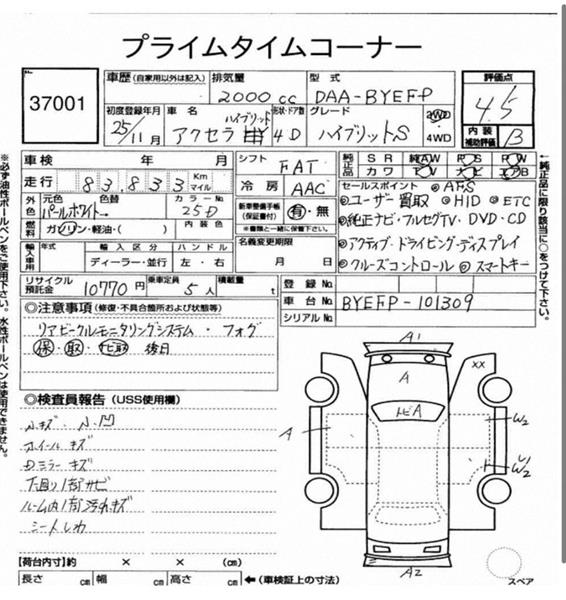 プライムタイムコーナー
37001
車歴 (自家用以外は記入) 排気量 型式
2000cc DAA-BYEFP
評価点
4.5
内装 補助評価 B
初度登録年月 車名 形状・ドア数 グレード
25/11月 アクセラ ハイブリット 4D ハイブリットS
2WD・4WD
車検 年 月
走行 83,833 Km マイル
シフト FAT
冷房 AAC
純正品 SR AW PS PW
カワ TV ナビ エアB
外色 元色 色替 カラーNo
パールホワイト→ 25D
燃料 ガソリン・軽油・( ) 内装色
輸入車用 年式 輸入区分 ハンドル
ディーラー・並行 左・右
新車整備手帳(保証書付) 有・無
※書類と一緒に保管下さい。
名義変更期限
月 日
セールスポイント ◎AFS
◎ユーザー買取 ◎HID ◎ETC
◎純正ナビ・フルセグTV・DVD・CD
◎アクティブ・ドライビング・ディスプレイ
◎クルーズコントロール ◎スマートキー
←純正品に限り該当に○をつけて下さい。
※必ず油性ボールペンをご使用下さい。水性ボールペンは使用できません。
リサイクル預託金 10770円 乗車定員 5人 積載量 t
登録No
車台No BYEFP-101309
シリアルNo
◎注意事項 (修復・不具合箇所および状態等)
リアビークルモニタリングシステム・フォグ
保・取・ 後日
◎検査員報告 (USS使用欄)
小キズ 小凹
ホイールキズ
Dミラーキズ
下廻り1部サビ
ルーム内1部汚れキズ
シートしわ
A1
A
XX
トビA
A
W2
U1
W2
A2
スペア
【荷台内寸】約 × × (cm)
長さ cm 幅 cm 高さ cm ←(車検証上の寸法)